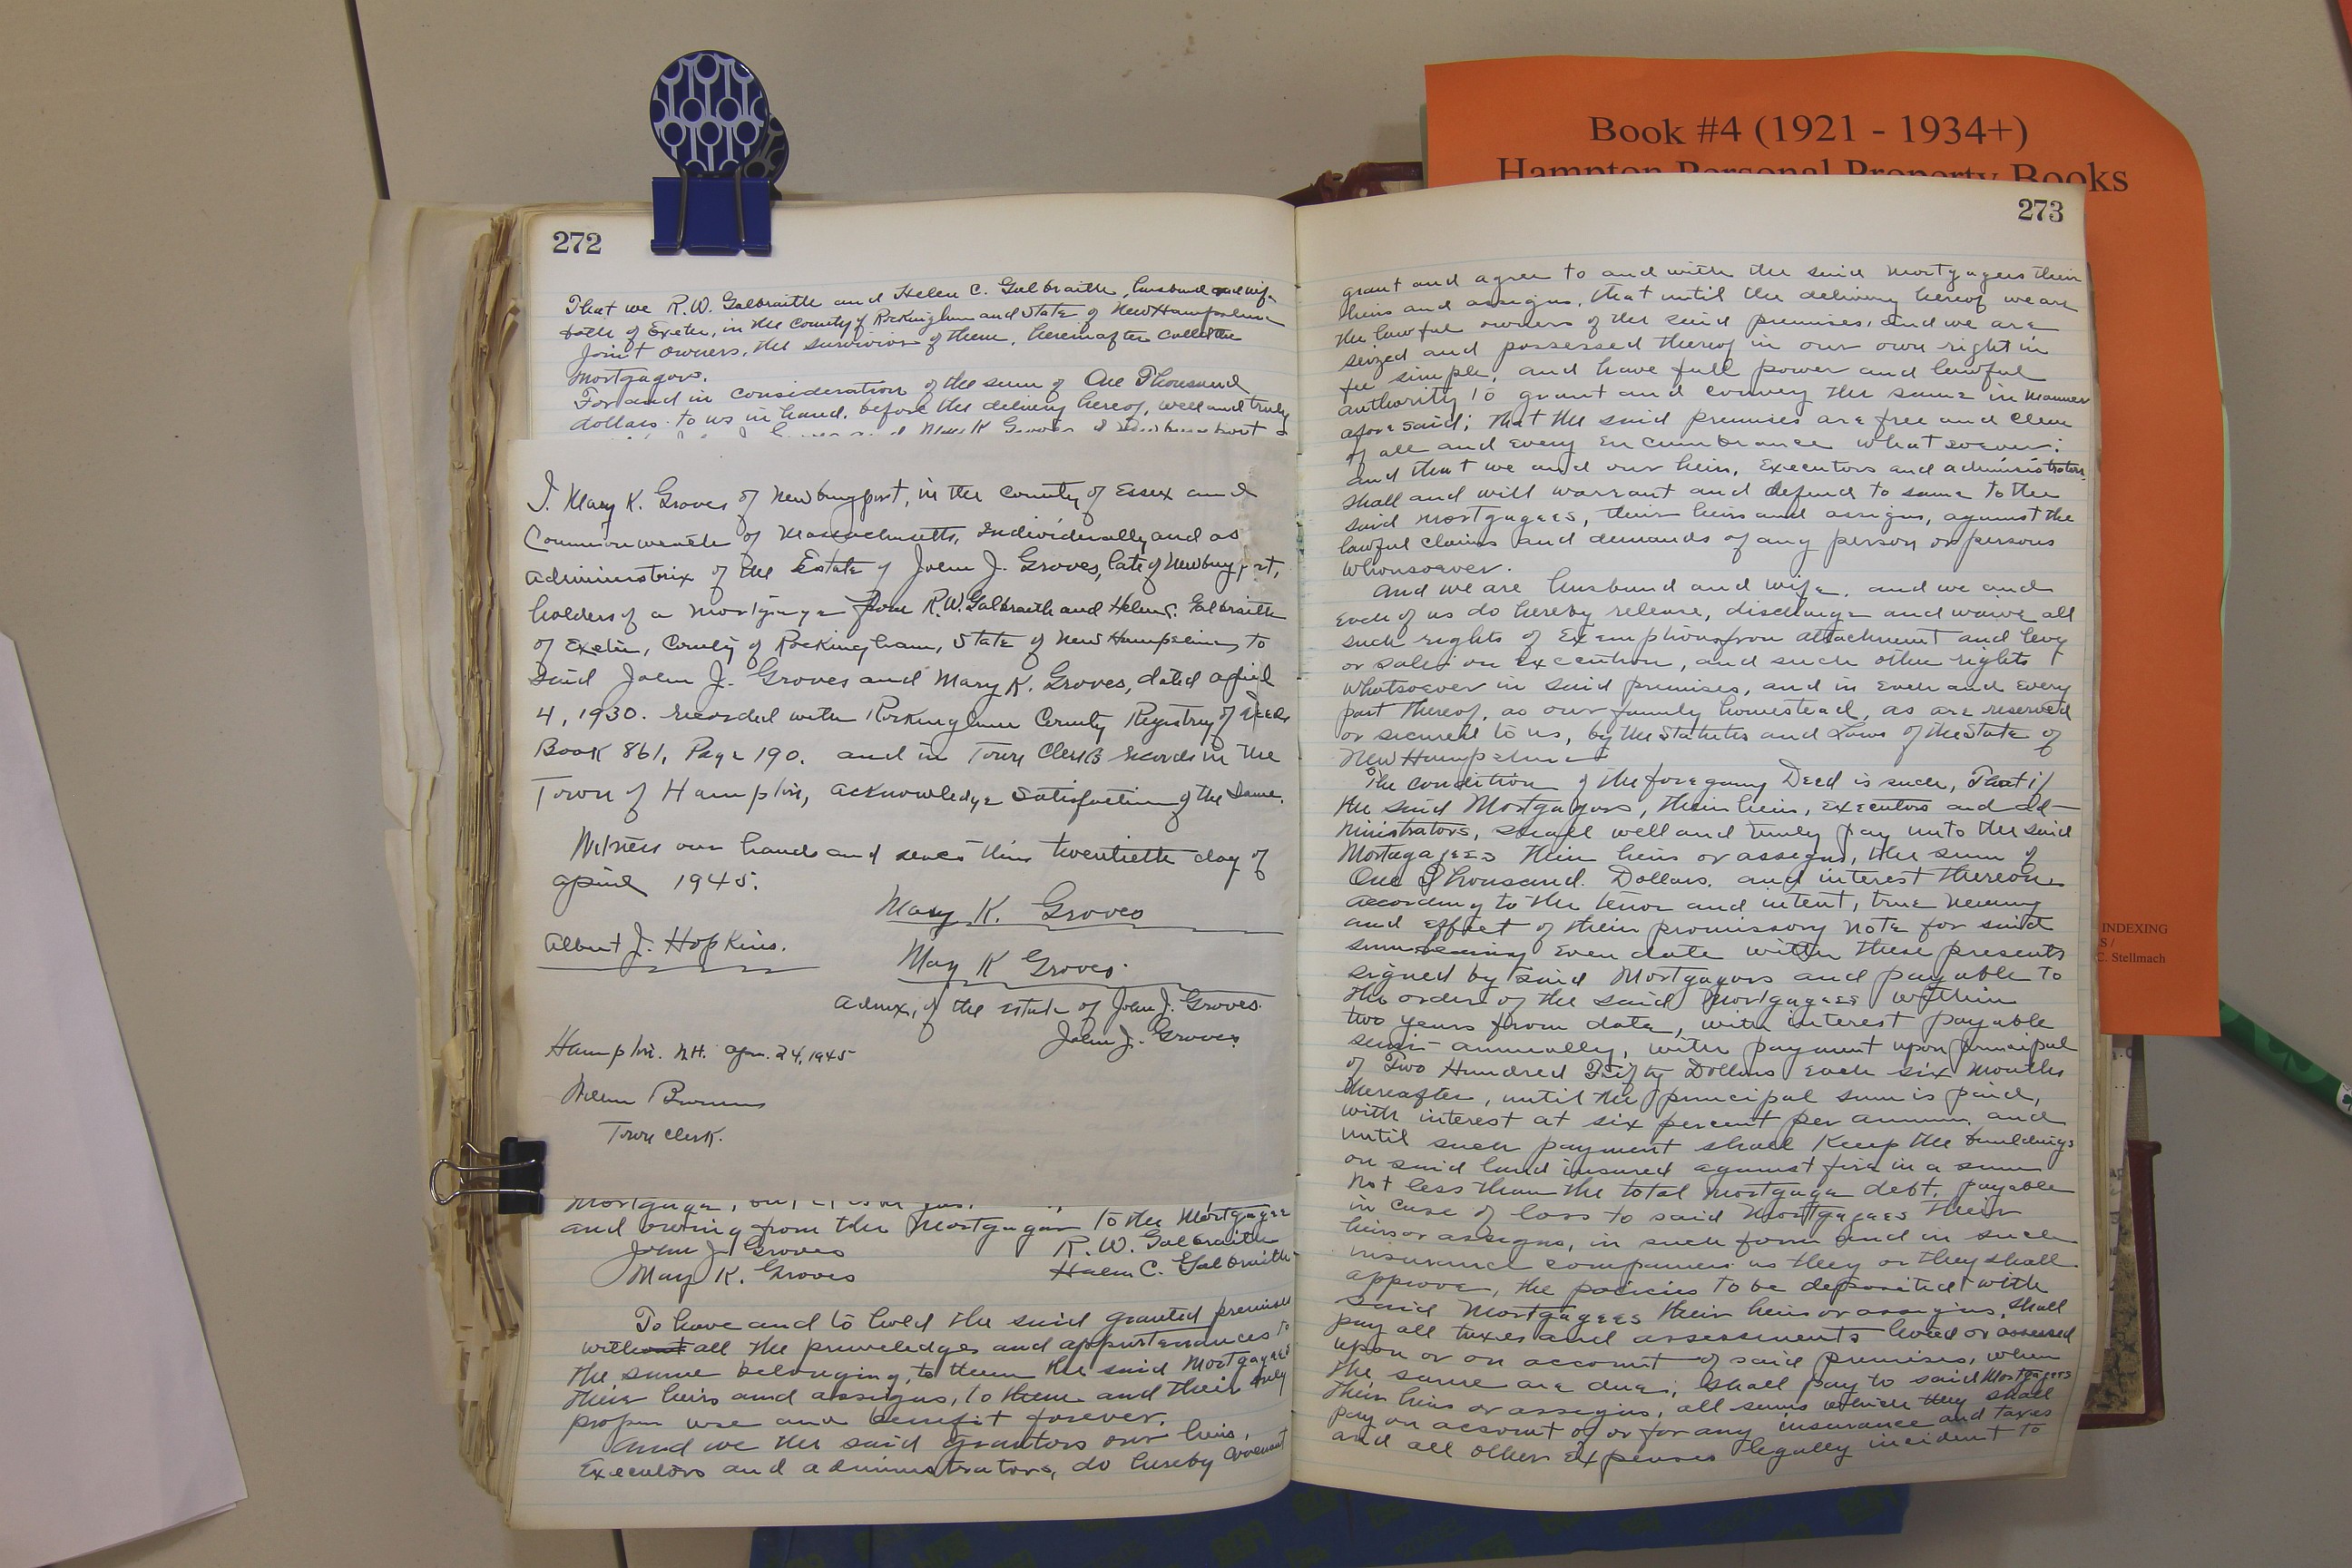 Book #4 (1921 - 1934+)
Hampton Personal Property Books
INDEXING
S /
C. Stellmach
272
That we R.W. Galbraith and Helen C. Galbraith, husband and wife
both of Exeter, in the County of Rockingham and State of New Hampshire
joint owners, the survivor of them, hereinafter called the
Mortgagors.
For and in consideration of the sum of One Thousand
dollars to us in hand, before the delivery hereof, well and truly
and Mary K Groves of Newburyport
I, Mary K. Groves of Newburyport, in the county of Essex and
Commonwealth of Massachusetts, Individually and as
administrix of the Estate of John J. Groves, late of Newburyport,
holders of a mortgage from R.W. Galbraith and Helen C. Galbraith
of Exeter, County of Rockingham, State of New Hampshire, to
said John J. Groves and Mary K. Groves, dated april
4, 1930. recorded with Rockingham County Registry of Deeds
Book 861, Page 190. and in Town Clerks records in the
Town of Hampton, acknowledge satisfaction of the same.
Witness our hands and seals this twentieth day of
april 1945.
Mary K. Groves
Albert J. Hopkins.
Mary K Groves.
Admx, of the estate of John J. Groves.
John J. Groves
Hampton. N.H. Apr. 24, 1945
Town Clerk.
Mortgage,
and owing from the Mortgagor to the Mortgagee
John J. Groves R. W. Galbraith
Mary K. Groves Helen C. Galbraith
To have and to hold the said granted premises
without all the priveledges and appurtenances to
the same belonging, to them the said Mortgagees
their heirs and assigns, to them and their only
proper use and benefit forever.
And we the said grantors our heirs,
Executors and administrators, do hereby covenant
273
grant and agree to and with the said mortgagees their
heirs and assigns, that until the delivery hereof we are
the lawful owners of the said premises, and we are
seized and possessed thereof in our own right in
fee simple, and have full power and lawful
authority to grant and convey the same in manner
aforesaid; that the said premises are free and clear
of all and every encumbrance whatsoever:
and that we and our heirs, Executors and administrators
shall and will warrant and defend to same to the
said Mortgagees, their heirs and assigns, against the
lawful claims and demands of any person or persons
whomsoever.
And we are husband and wife, and we and
each of us do hereby release, discharge and waive all
such rights of Exemption from attachment and levy
or sale on execution, and such other rights
whatsoever in said premises, and in each and every
part thereof, as our family homestead, as are reserved
or secured to us, by the Statutes and Laws of the State of
New Hampshire
The condition of the foregoing Deed is such, That if
the said Mortgagors, their heirs, executors and ad-
ministrators, shall well and truly pay unto the said
Mortgagees their heirs or assigns, the sum of
One Thousand. Dollars. and interest thereon
according to the tenor and intent, true meaning
and effect of their promissory note for said
sum bearing even date with these presents
signed by said Mortgagors and payable to
the order of the said Mortgagees within
two years from date, with interest payable
semi-annually, with payment upon principal
of Two Hundred Fifty Dollars each six months
thereafter, until the principal sum is paid,
with interest at six percent per annum. and
until such payment shall keep the buildings
on said land insured against fire in a sum
not less than the total mortgage debt, payable
in case of loss to said Mortgagees their
heirs or assigns, in such form and in such
insurance companies as they or they shall
approve, the policies to be deposited with
said Mortgagees their heirs or assigns, shall
pay all taxes and assessments levied or assessed
upon or on account of said premises, when
the same are due; shall pay to said Mortgagees
their heirs or assigns, all sums which they shall
pay on account of or for any insurance and taxes
and all other expenses legally incident to